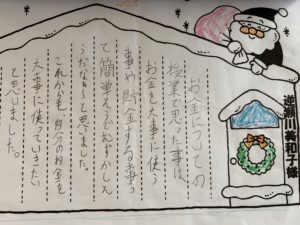 お金についての
授業で思った事は、
お金を大事に使う
事や貯金する事っ
て簡単そうでむずかしん
だなぁと思いました。
これからも自分のお金を
大事に使っていきたい
と思いました。
逆瀬川美和子様